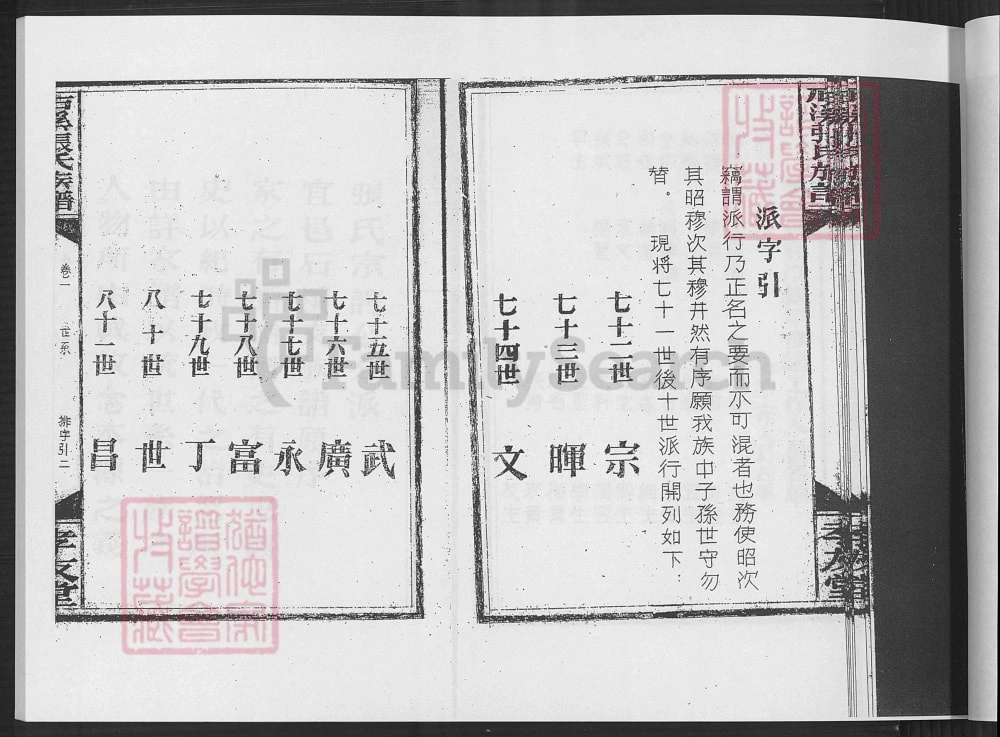 派字引
竊謂派行乃正名之要而不可混者也務使昭次
其昭穆次其穆井然有序願我族中子孫世守勿
替。　現将七十一世後十世派行開列如下：
七十二世　宗
七十三世　暉
七十四世　文
七十五世　武
七十六世　廣
七十七世　永
七十八世　富
七十九世　丁
八十世　世
八十一世　昌
張氏族譜
卷一　世系　排字引二
孝友堂
FamilySearch